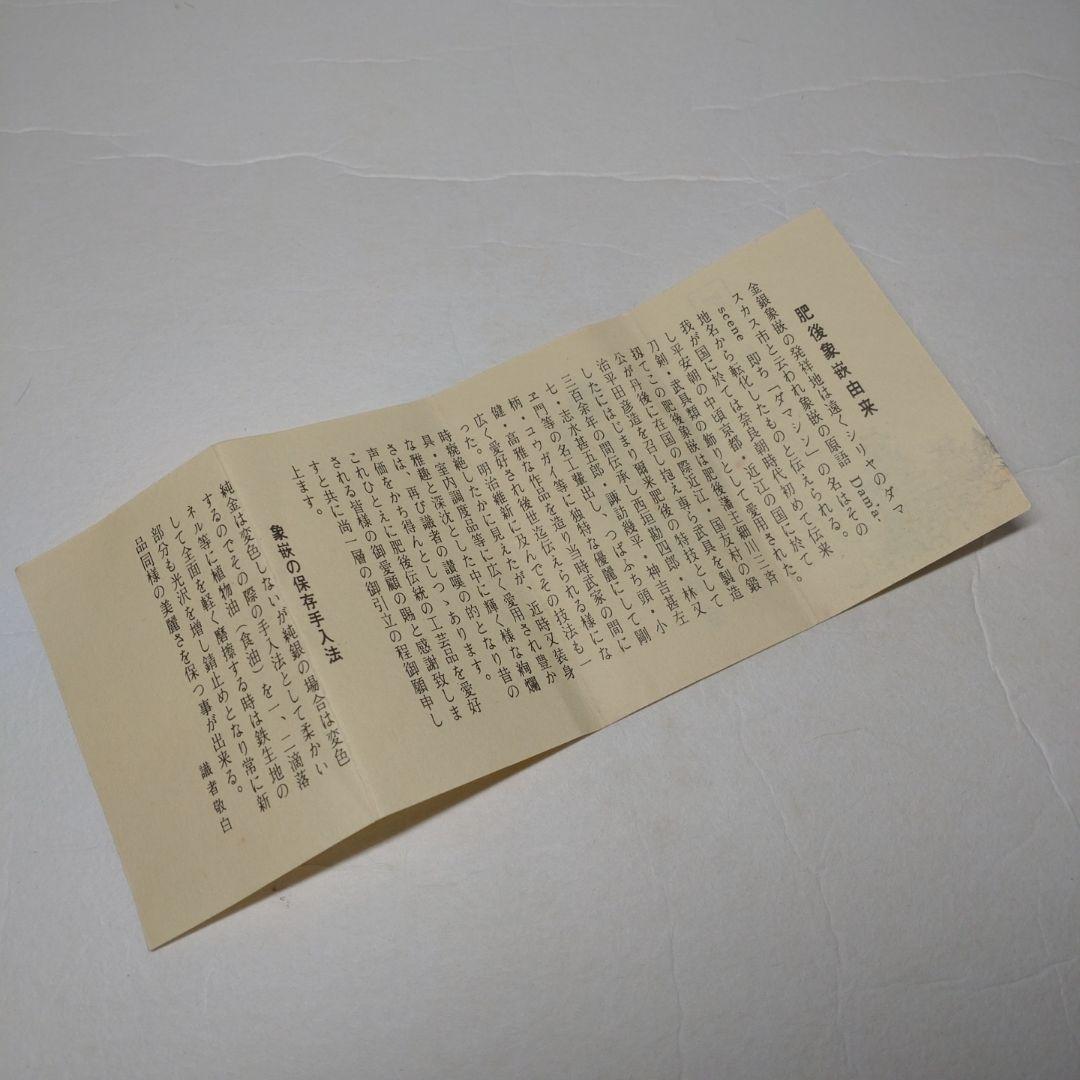 肥後象嵌由来
金銀象嵌の発祥地は、遠くシリヤのダマ
スカス市と云われ象嵌の原語 Dama-
scene 即ち「ダマシン」の名はその
地名から転化したものと伝えられる。
我が国に於ては奈良朝時代初めて伝来
し平安朝の中頃京都・近江の国に於て
刀剣・武具類の飾りとして愛用された。
扨てこの肥後象嵌は肥後藩主細川三斉
公が丹後に在国の際近江・国友村の鍛
治平田彦造を召し抱え専ら武具を製造
したにはじまり爾来肥後の特技として
三百余年の間伝承し西垣勘四郎・林又
七・志水甚五郎・諏訪幾平・神吉甚左
ヱ門等の名工輩出し、つばふち頭・小
柄・コウガイ等に独特な優麗にして剛
健・高雅な作品を造り当時武家の間に
広く愛好され後世迄伝えられる様にな
った。明治維新に及んでその技法も一
時廃絶したかに見えたが、近時又装身
具・室内調度品等に広く愛用され豊か
な雅趣と深沈とした中に輝く様な絢爛
さは、再び識者の讃嘆の的となり昔の
声価をかち得んとしつゝあります。
これひとえに肥後伝統の工芸品を愛好
される皆様の御愛顧の賜と感謝致しま
すと共に尚一層の御引立の程御願申し
上ます。
象嵌の保存手入法
純金は変色しないが純銀の場合は変色
するのでその際の手入法として柔かい
ネル等に植物油(食油)を一、二滴落
して全面を軽く磨擦する時は鉄生地の
部分も光沢を増し錆止めとなり常に新
品同様の美麗さを保つ事が出来る。
識者敬白